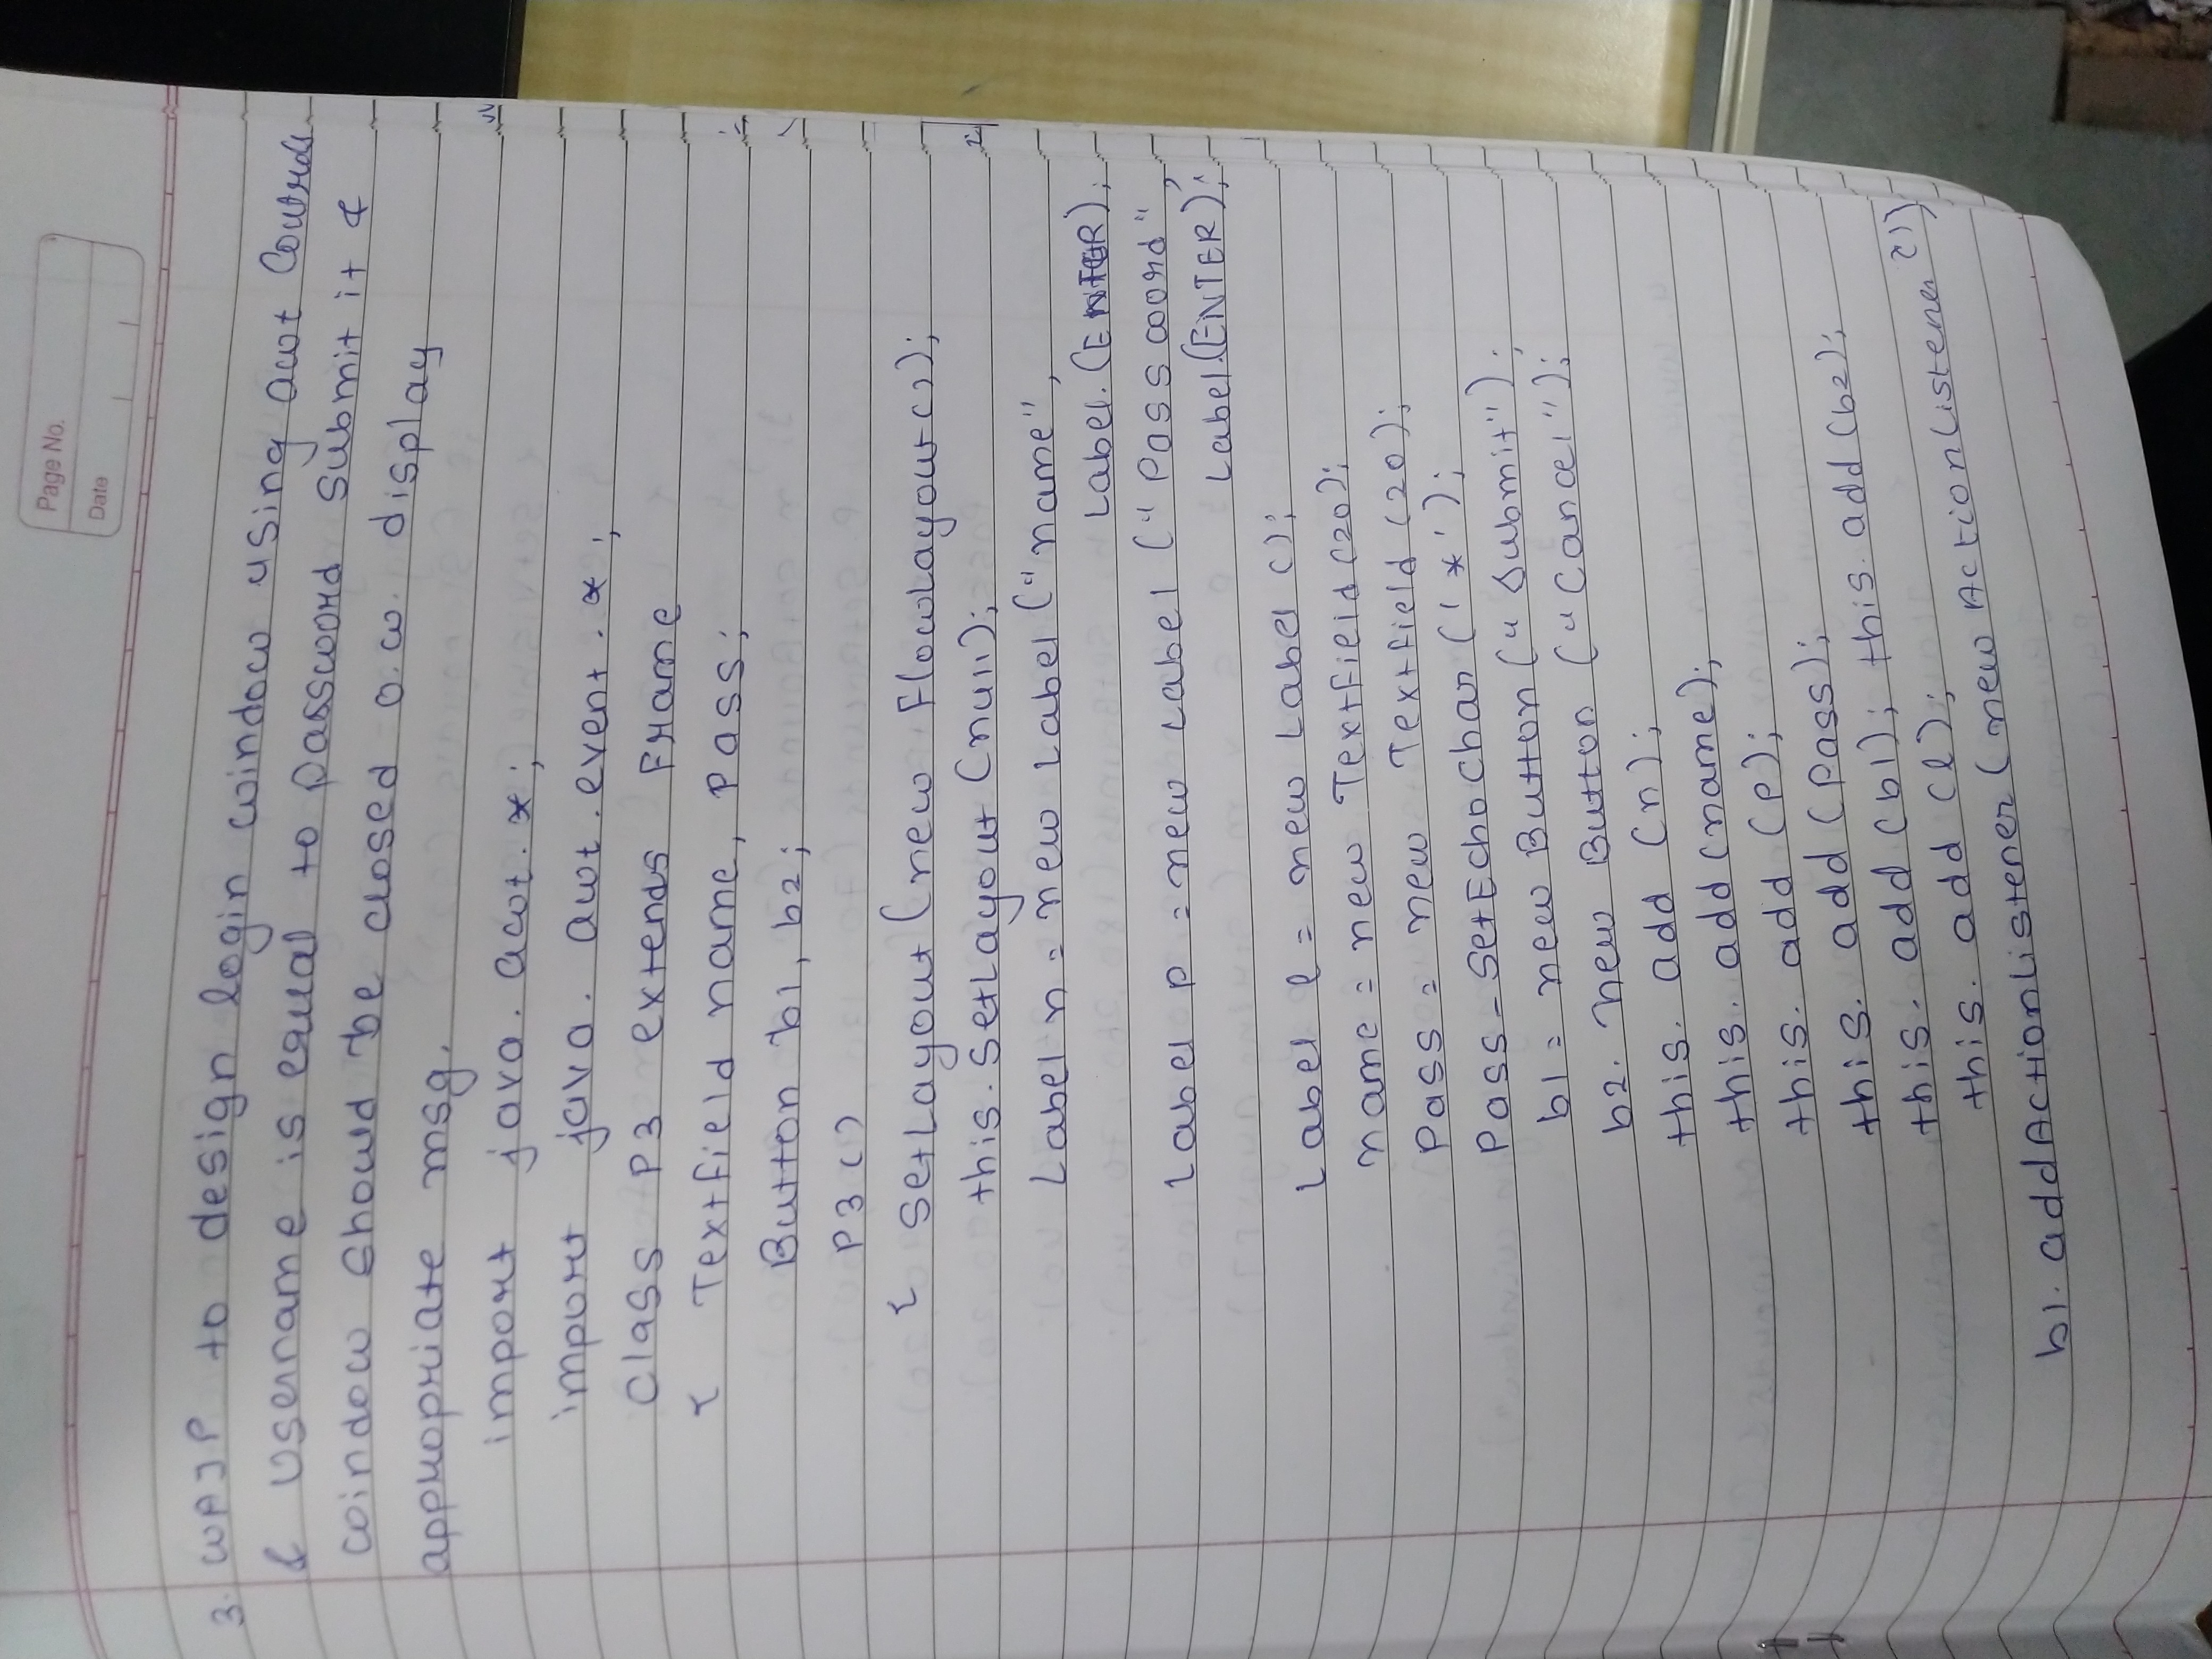 Page No.
Date
3. WAJP to design login window using awt Controls
& Username is equal to password submit it &
window should be closed o.w. display
appropriate msg.
import java. awt. *;
import java. awt. event. *;
class P3 extends Frame
{ Textfield name, pass;
Button b1, b2;
P3 ()
{ setLayout (new FlowLayout ());
this. setLayout (null);
Label n = new Label ("name",
Label. (ENTER);
Label p = new Label ("Password",
Label.(ENTER);
Label l = new Label ();
name = new Textfield (20);
Pass = new Textfield (20);
Pass - setEchoChar ('*');
b1 = new Button ("Submit");
b2. new Button ("Cancel");
this. add (n);
this. add (name);
this. add (p);
this. add (pass);
this. add (b1); this. add (b2);
this. add (l);
b1. addActionListener (new ActionListener ())